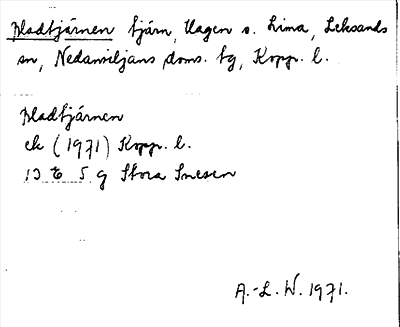 Bladtjärnen tjärn, Hagen o. Lima, Leksands
sn, Nedansiljans doms. tg, Kopp. l.
Bladtjärnen
ek (1971) Kopp. l.
13 E 5 g Stora Snesen
A.-L. W. 1971.